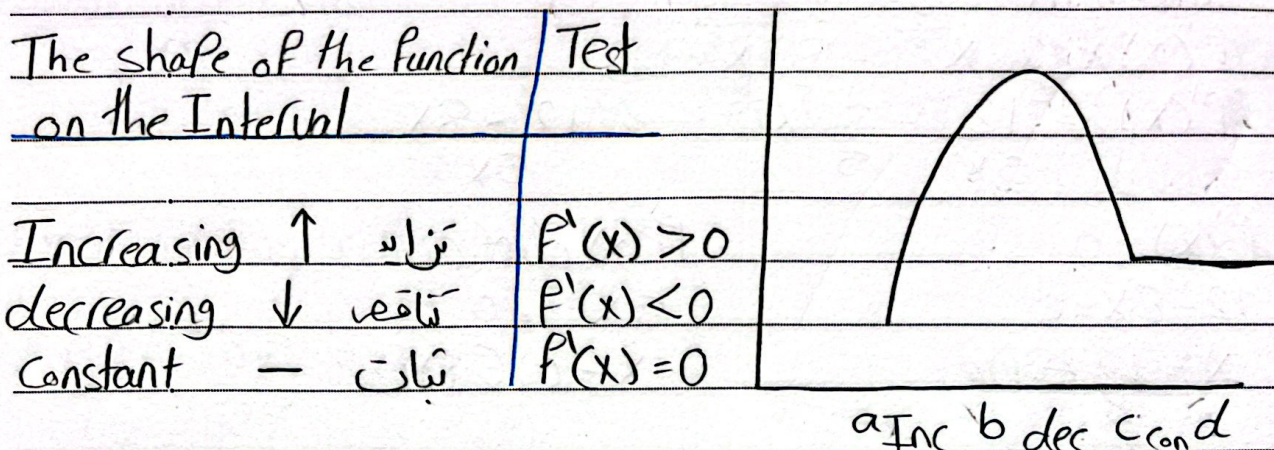 The shape of the function Test
on the Interval
Increasing ↑ تزايد f'(x) > 0
decreasing ↓ تناقص f'(x) < 0
Constant — ثبات f'(x) = 0
a Inc b dec c con d